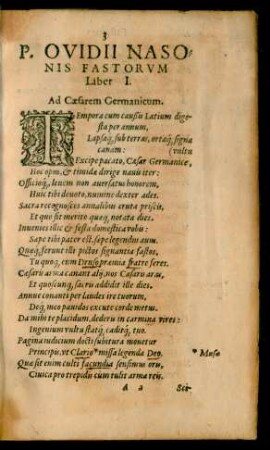 3
P. OVIDII NASO-
NIS FASTORVM
Liber I.
Ad Cæsarem Germanicum.
TEmpora cum causis Latium dige-
sta per annum,
Lapsaq́; sub terras, ortaq́; signa
canam: (vultu
Excipe pacato, Cæsar Germanice,
Hoc opus, & timidæ dirige nauis iter:
Officioq́;, leuem non auersatus honorem,
Huic tibi deuoto numine dexter ades.
Sacra recognosces annalibus eruta priscis,
Et quo sit merito quæq; notata dies.
Inuenies illic & festa domestica vobis:
Sæpe tibi pater est, sæpe legendus auus.
Quæq́; ferunt illi pictos signantia fastos,
Tu quoq; cum Druso præmia fratre feres.
Cæsaris arma canant alij, nos Cæsaris aras,
Et quoscunq; sacris addidit ille dies.
Annue conanti per laudes ire tuorum,
Deq́; meo pauidos excute corde metus.
Da mihi te placidum, dederis in carmina vires:
Ingenium vultu statq́; caditq́; tuo.
Pagina iudicium docti subitura mouetur
Principis, vt Clario* missa legenda Deo. *Musæ
Quæ sit enim culti facundia sensimus oris,
Ciuica pro trepidis cum tulit arma reis.
A 2 Sci-